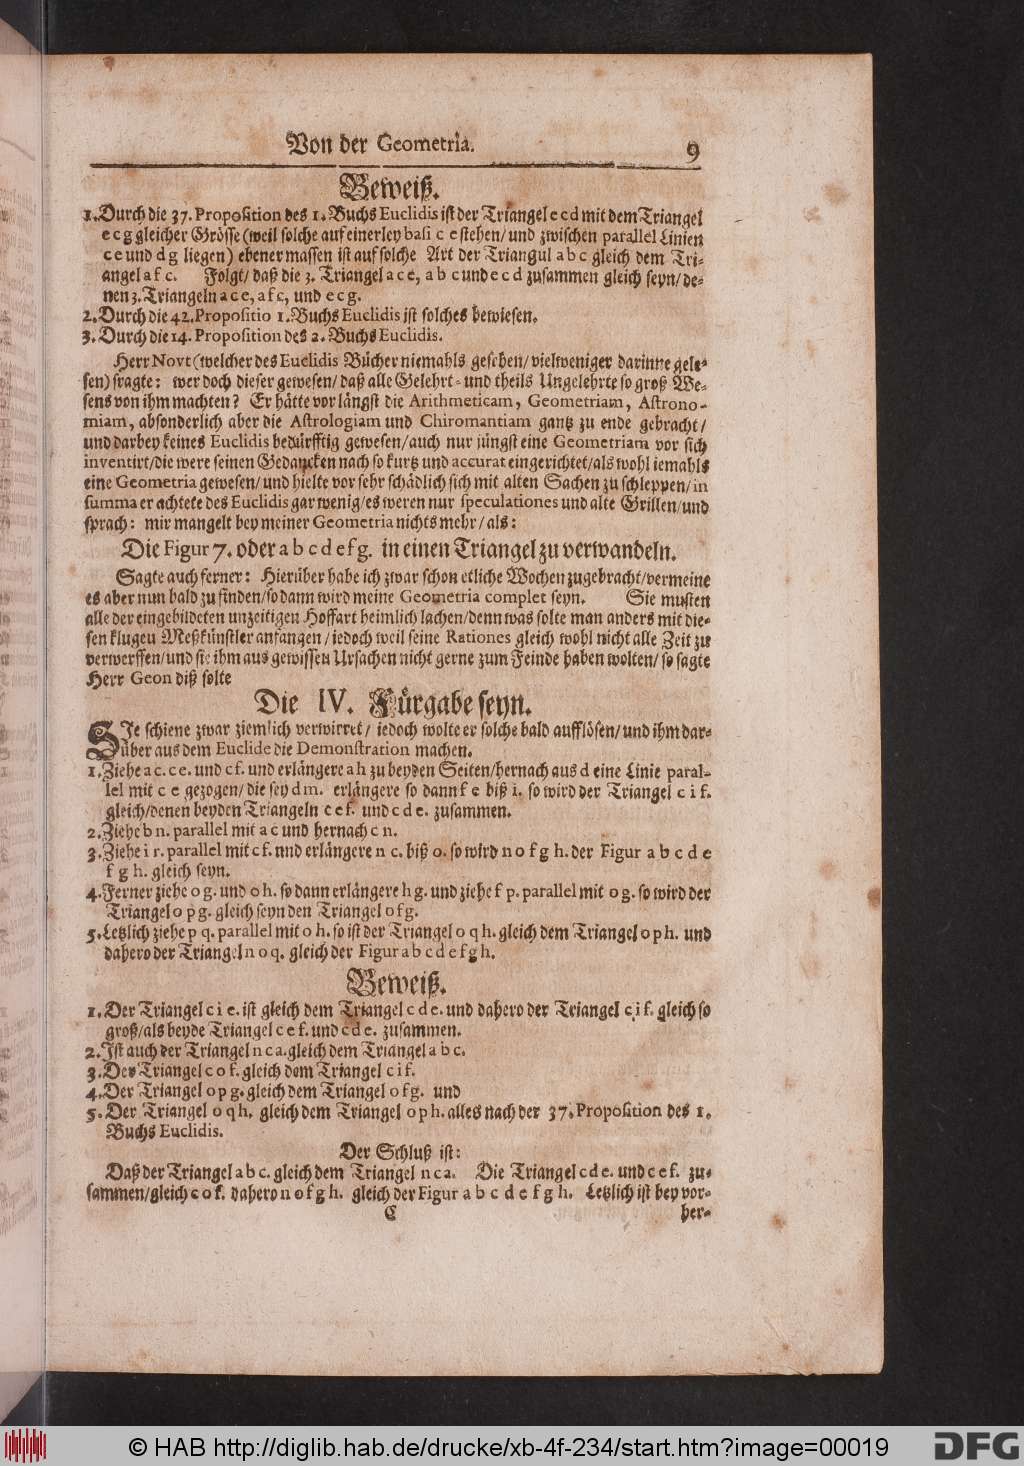 Von der Geometria. 9
Beweiß.
1. Durch die 37. Proposition des 1. Buchs Euclidis ist der Triangel e c d mit dem Triangel
e c g gleicher Grösse (weil solche auf einerley basi c e stehen/ und zwischen parallel Linien
c e und d g liegen) ebener massen ist auf solche Art der Triangul a b c gleich dem Tri-
angel a f c. Folgt/ daß die 3. Triangel a c e, a b c und e c d zusammen gleich seyn/ de-
nen 3. Triangeln a c e, a f c, und e c g.
2. Durch die 42. Propositio 1. Buchs Euclidis ist solches bewiesen.
3. Durch die 14. Proposition des 2. Buchs Euclidis.
Herr Novt (welcher des Euclidis Bücher niemahls gesehen/ vielweniger darinne gele-
sen) fragte: wer doch dieser gewesen/ daß alle Gelehrt- und theils Ungelehrte so groß We-
sens von ihm machten? Er hätte vorlängst die Arithmeticam, Geometriam, Astrono-
miam, absonderlich aber die Astrologiam und Chiromantiam gantz zu ende gebracht/
und darbey keines Euclidis bedürfftig gewesen/ auch nur jüngst eine Geometriam vor sich
inventirt/ die were seinen Gedancken nach so kurtz und accurat eingerichtet/ als wohl iemahls
eine Geometria gewesen/ und hielte vor sehr schädlich sich mit alten Sachen zu schleppen/ in
summa er achtete des Euclidis gar wenig/ es weren nur speculationes und alte Grillen/ und
sprach: mir mangelt bey meiner Geometria nichts mehr/ als:
Die Figur 7. oder a b c d e f g. in einen Triangel zu verwandeln.
Sagte auch ferner: Hierüber habe ich zwar schon etliche Wochen zugebracht/ vermeine
es aber nun bald zu finden/ so dann wird meine Geometria complet seyn. Sie musten
alle der eingebildeten unzeitigen Hoffart heimlich lachen/ denn was solte man anders mit die-
sen klugen Meßkünstler anfangen/ iedoch weil seine Rationes gleich wohl nicht alle Zeit zu
verwerffen/ und sie ihm aus gewissen Ursachen nicht gerne zum Feinde haben wolten/ so sagte
Herr Geon diß solte
Die IV. Fürgabe seyn.
SIe schiene zwar ziemlich verwirret/ iedoch wolte er solche bald aufflösen/ und ihm dar-
über aus dem Euclide die Demonstration machen.
1. Ziehe a c. c e. und c f. und erlängere a h zu beyden Seiten/ hernach aus d eine Linie paral-
lel mit c e gezogen/ die sey d m. erlängere so dann f e biß i. so wird der Triangel c i f.
gleich/ denen beyden Triangeln c e f. und c d e. zusammen.
2. Ziehe b n. parallel mit a c und hernach c n.
3. Ziehe i r. parallel mit c f. und erlängere n c. biß o. so wird n o f g h. der Figur a b c d e
f g h. gleich seyn.
4. Ferner ziehe o g. und o h. so dann erlängere h g. und ziehe f p. parallel mit o g. so wird der
Triangel o p g. gleich seyn den Triangel o f g.
5. Letzlich ziehe p q. parallel mit o h. so ist der Triangel o q h. gleich dem Triangel o p h. und
dahero der Triangel n o q. gleich der Figur a b c d e f g h.
Beweiß.
1. Der Triangel c i e. ist gleich dem Triangel c d e. und dahero der Triangel c i f. gleich so
groß/ als beyde Triangel c e f. und c d e. zusammen.
2. Ist auch der Triangel n c a. gleich dem Triangel a b c.
3. Der Triangel c o f. gleich dem Triangel c i f.
4. Der Triangel o p g. gleich dem Triangel o f g. und
5. Der Triangel o q h. gleich dem Triangel o p h. alles nach der 37. Proposition des 1.
Buchs Euclidis.
Der Schluß ist:
Daß der Triangel a b c. gleich dem Triangel n c a. Die Triangel c d e. und c e f. zu-
sammen/ gleich c o f. dahero n o f g h. gleich der Figur a b c d e f g h. Letzlich ist bey vor-
C her-
© HAB http://diglib.hab.de/drucke/xb-4f-234/start.htm?image=00019 DFG